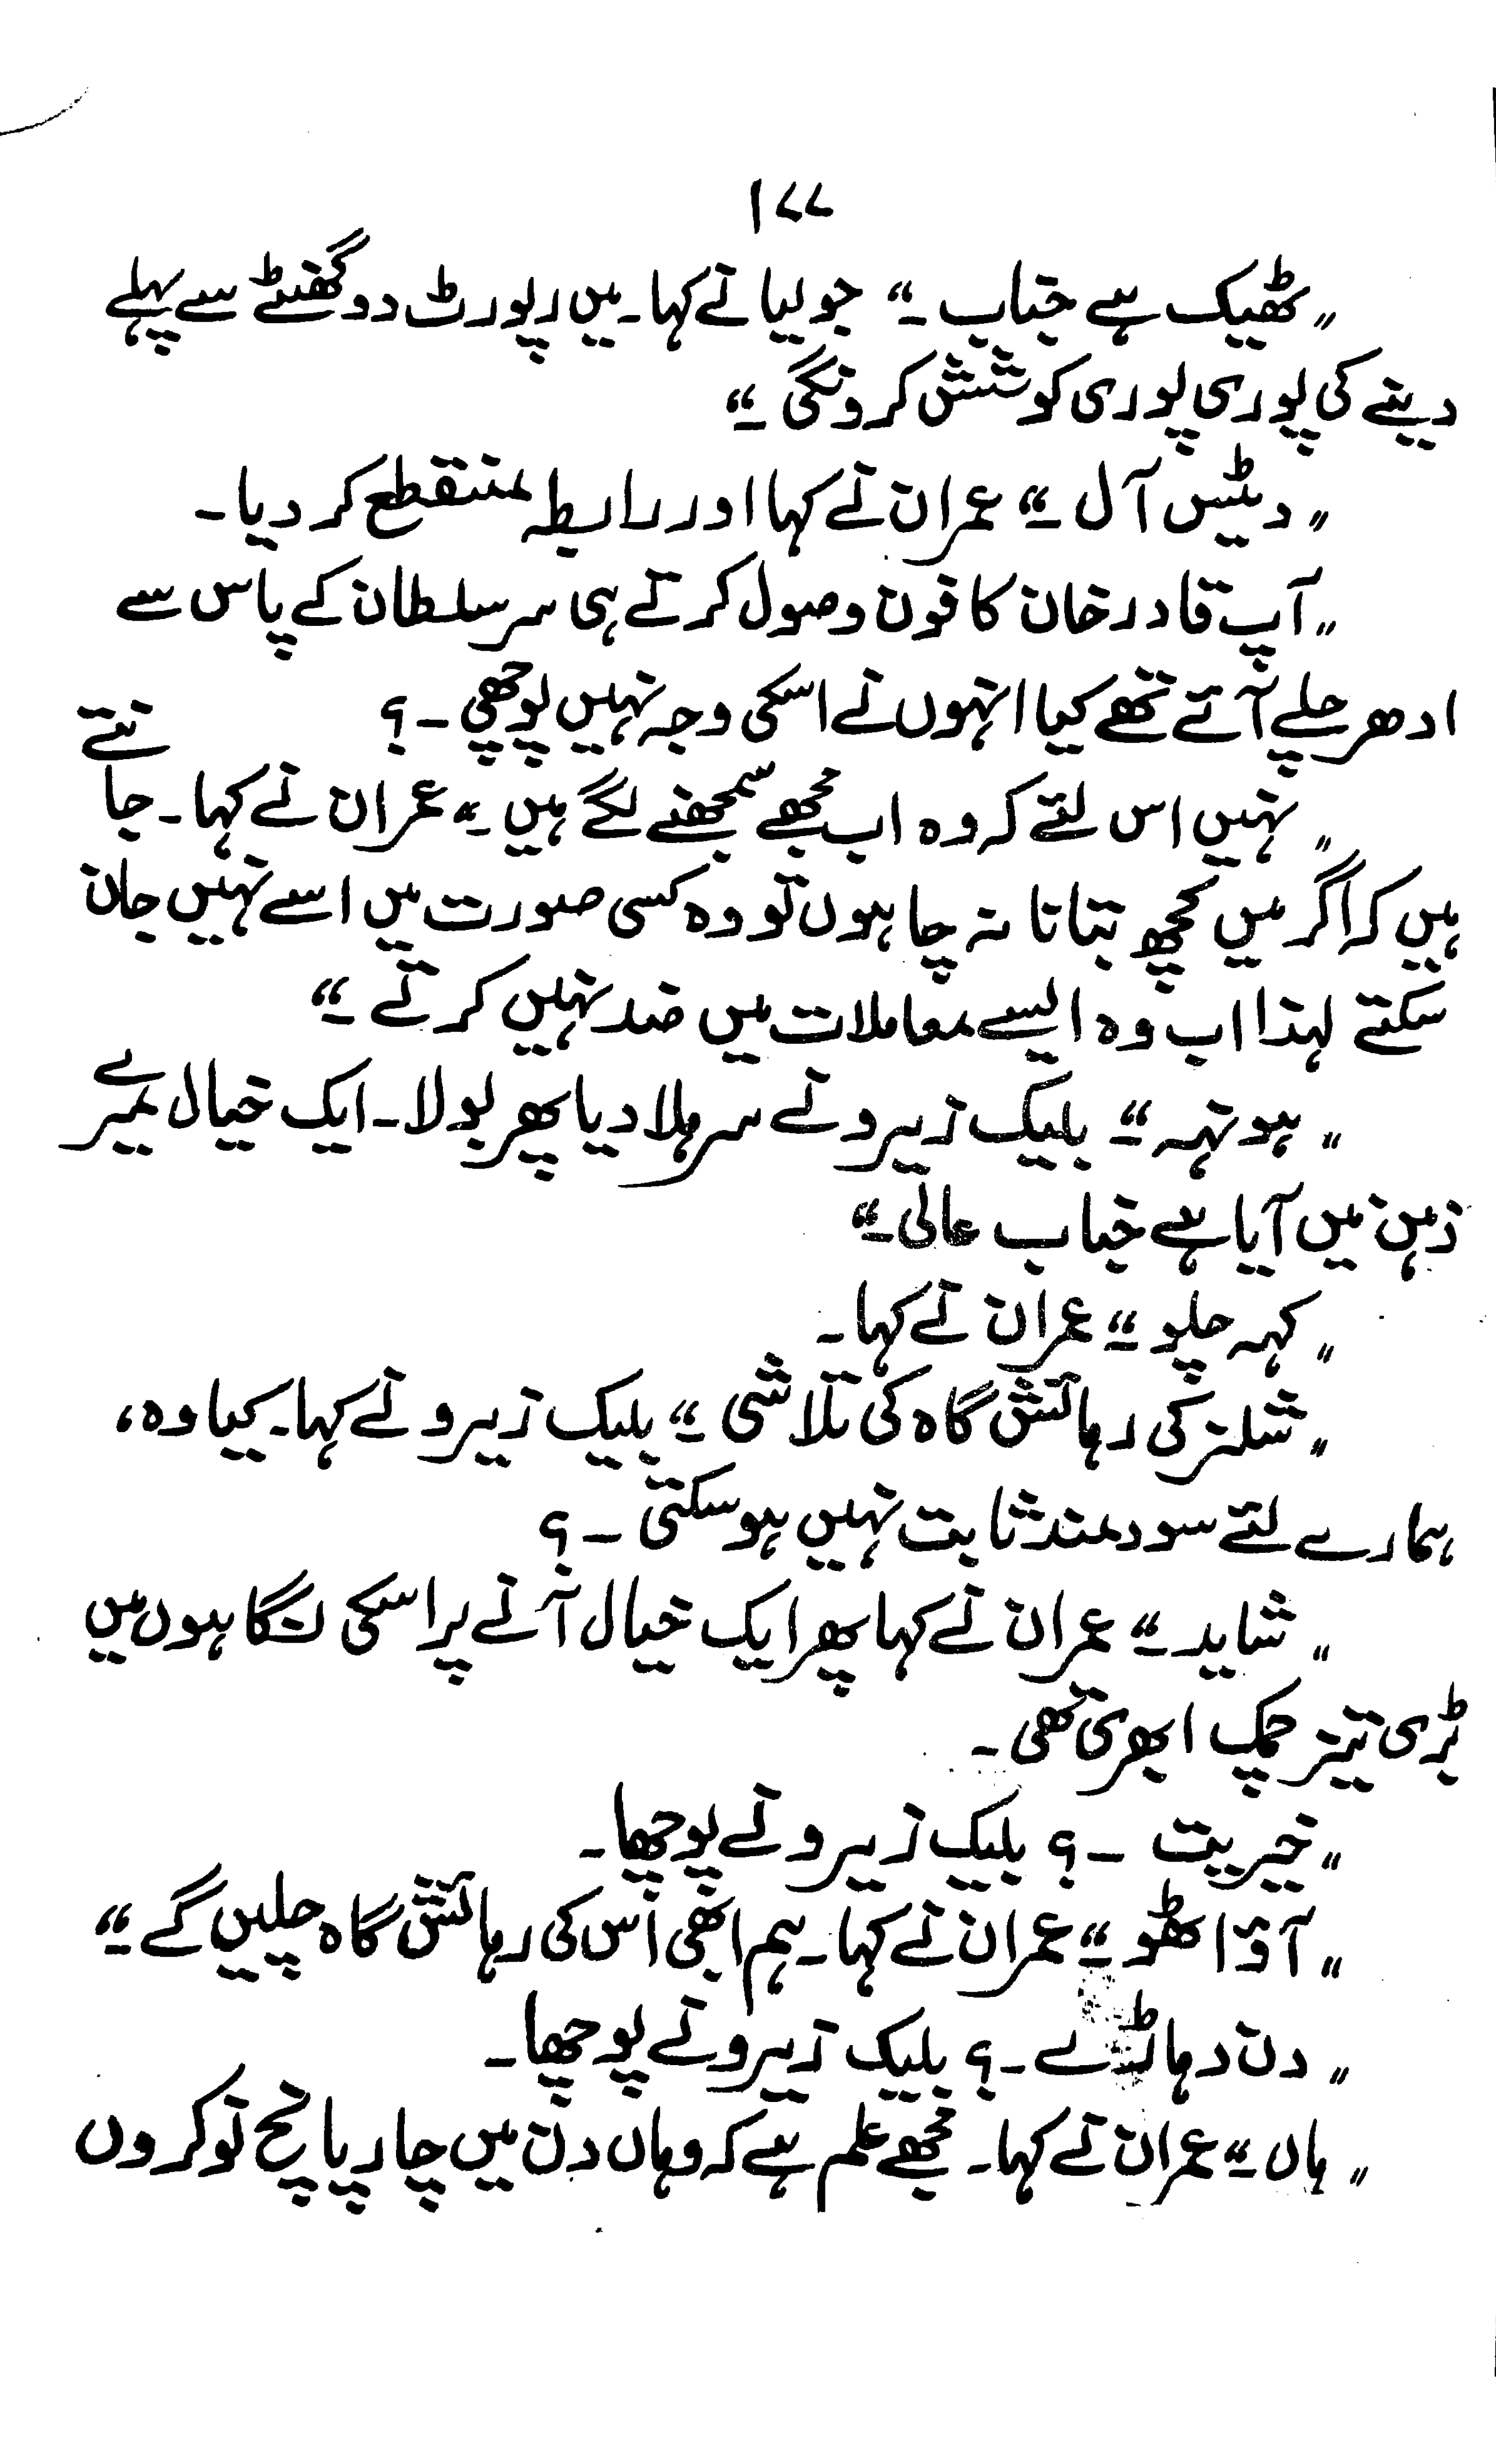 ۱۷۷
"ٹھیک ہے جناب۔" جولیا نے کہا۔ میں رپورٹ دو گھنٹے سے پہلے
دینے کی پوری پوری کوشش کرونگی۔"
"دیٹس آل۔" عمران نے کہا اور رابطہ منتقطع کر دیا۔
"آپ قادر خان کا فون وصول کرتے ہی سر سلطان کے پاس سے
ادھر چلے آئے تھے کیا انہوں نے اسکی وجہ نہیں پوچھی۔؟
"نہیں اس لئے کہ وہ اب مجھے سمجھنے لگے ہیں۔" عمران نے کہا۔ جانتے
ہیں کہ اگر میں کچھ بتانا نہ چاہوں تو وہ کسی صورت میں اسے نہیں جان
سکتے لہذا اب وہ ایسے معاملات میں ضد نہیں کرتے۔"
"ہونہہ۔" بلیک زیرو نے سر ہلا دیا پھر بولا۔ ایک خیال میرے
ذہن میں آیا ہے جناب عالی۔"
"کہہ چلو۔" عمران نے کہا۔
"شلنر کی رہائش گاہ کی تلاشی۔" بلیک زیرو نے کہا۔ کیا وہ،
ہمارے لئے سودمند ثابت نہیں ہو سکتی۔؟
"شاید۔" عمران نے کہا پھر ایک خیال آنے پر اسکی نگاہوں میں
بڑی تیز چمک ابھری تھی۔
"خیریت۔؟ بلیک زیرو نے پوچھا۔
"آؤ اٹھو۔" عمران نے کہا۔ ہم ابھی اس کی رہائش گاہ چلیں گے۔"
"دن دہاڑے۔؟ بلیک زیرو نے پوچھا۔
"ہاں۔" عمران نے کہا۔ مجھے علم ہے کہ وہاں دن میں چار پانچ نوکروں